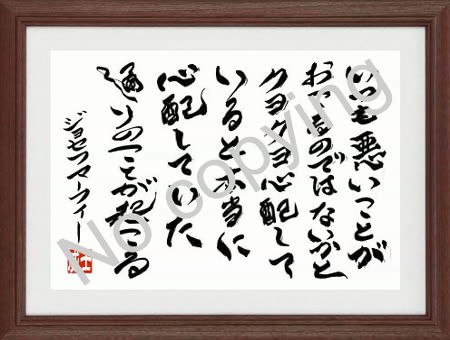 いつも悪いことが
おこるのではないかと
クヨクヨ心配して
いると本当に
心配していた
通りのことが起こる
ジョセフマーフィー
No copying